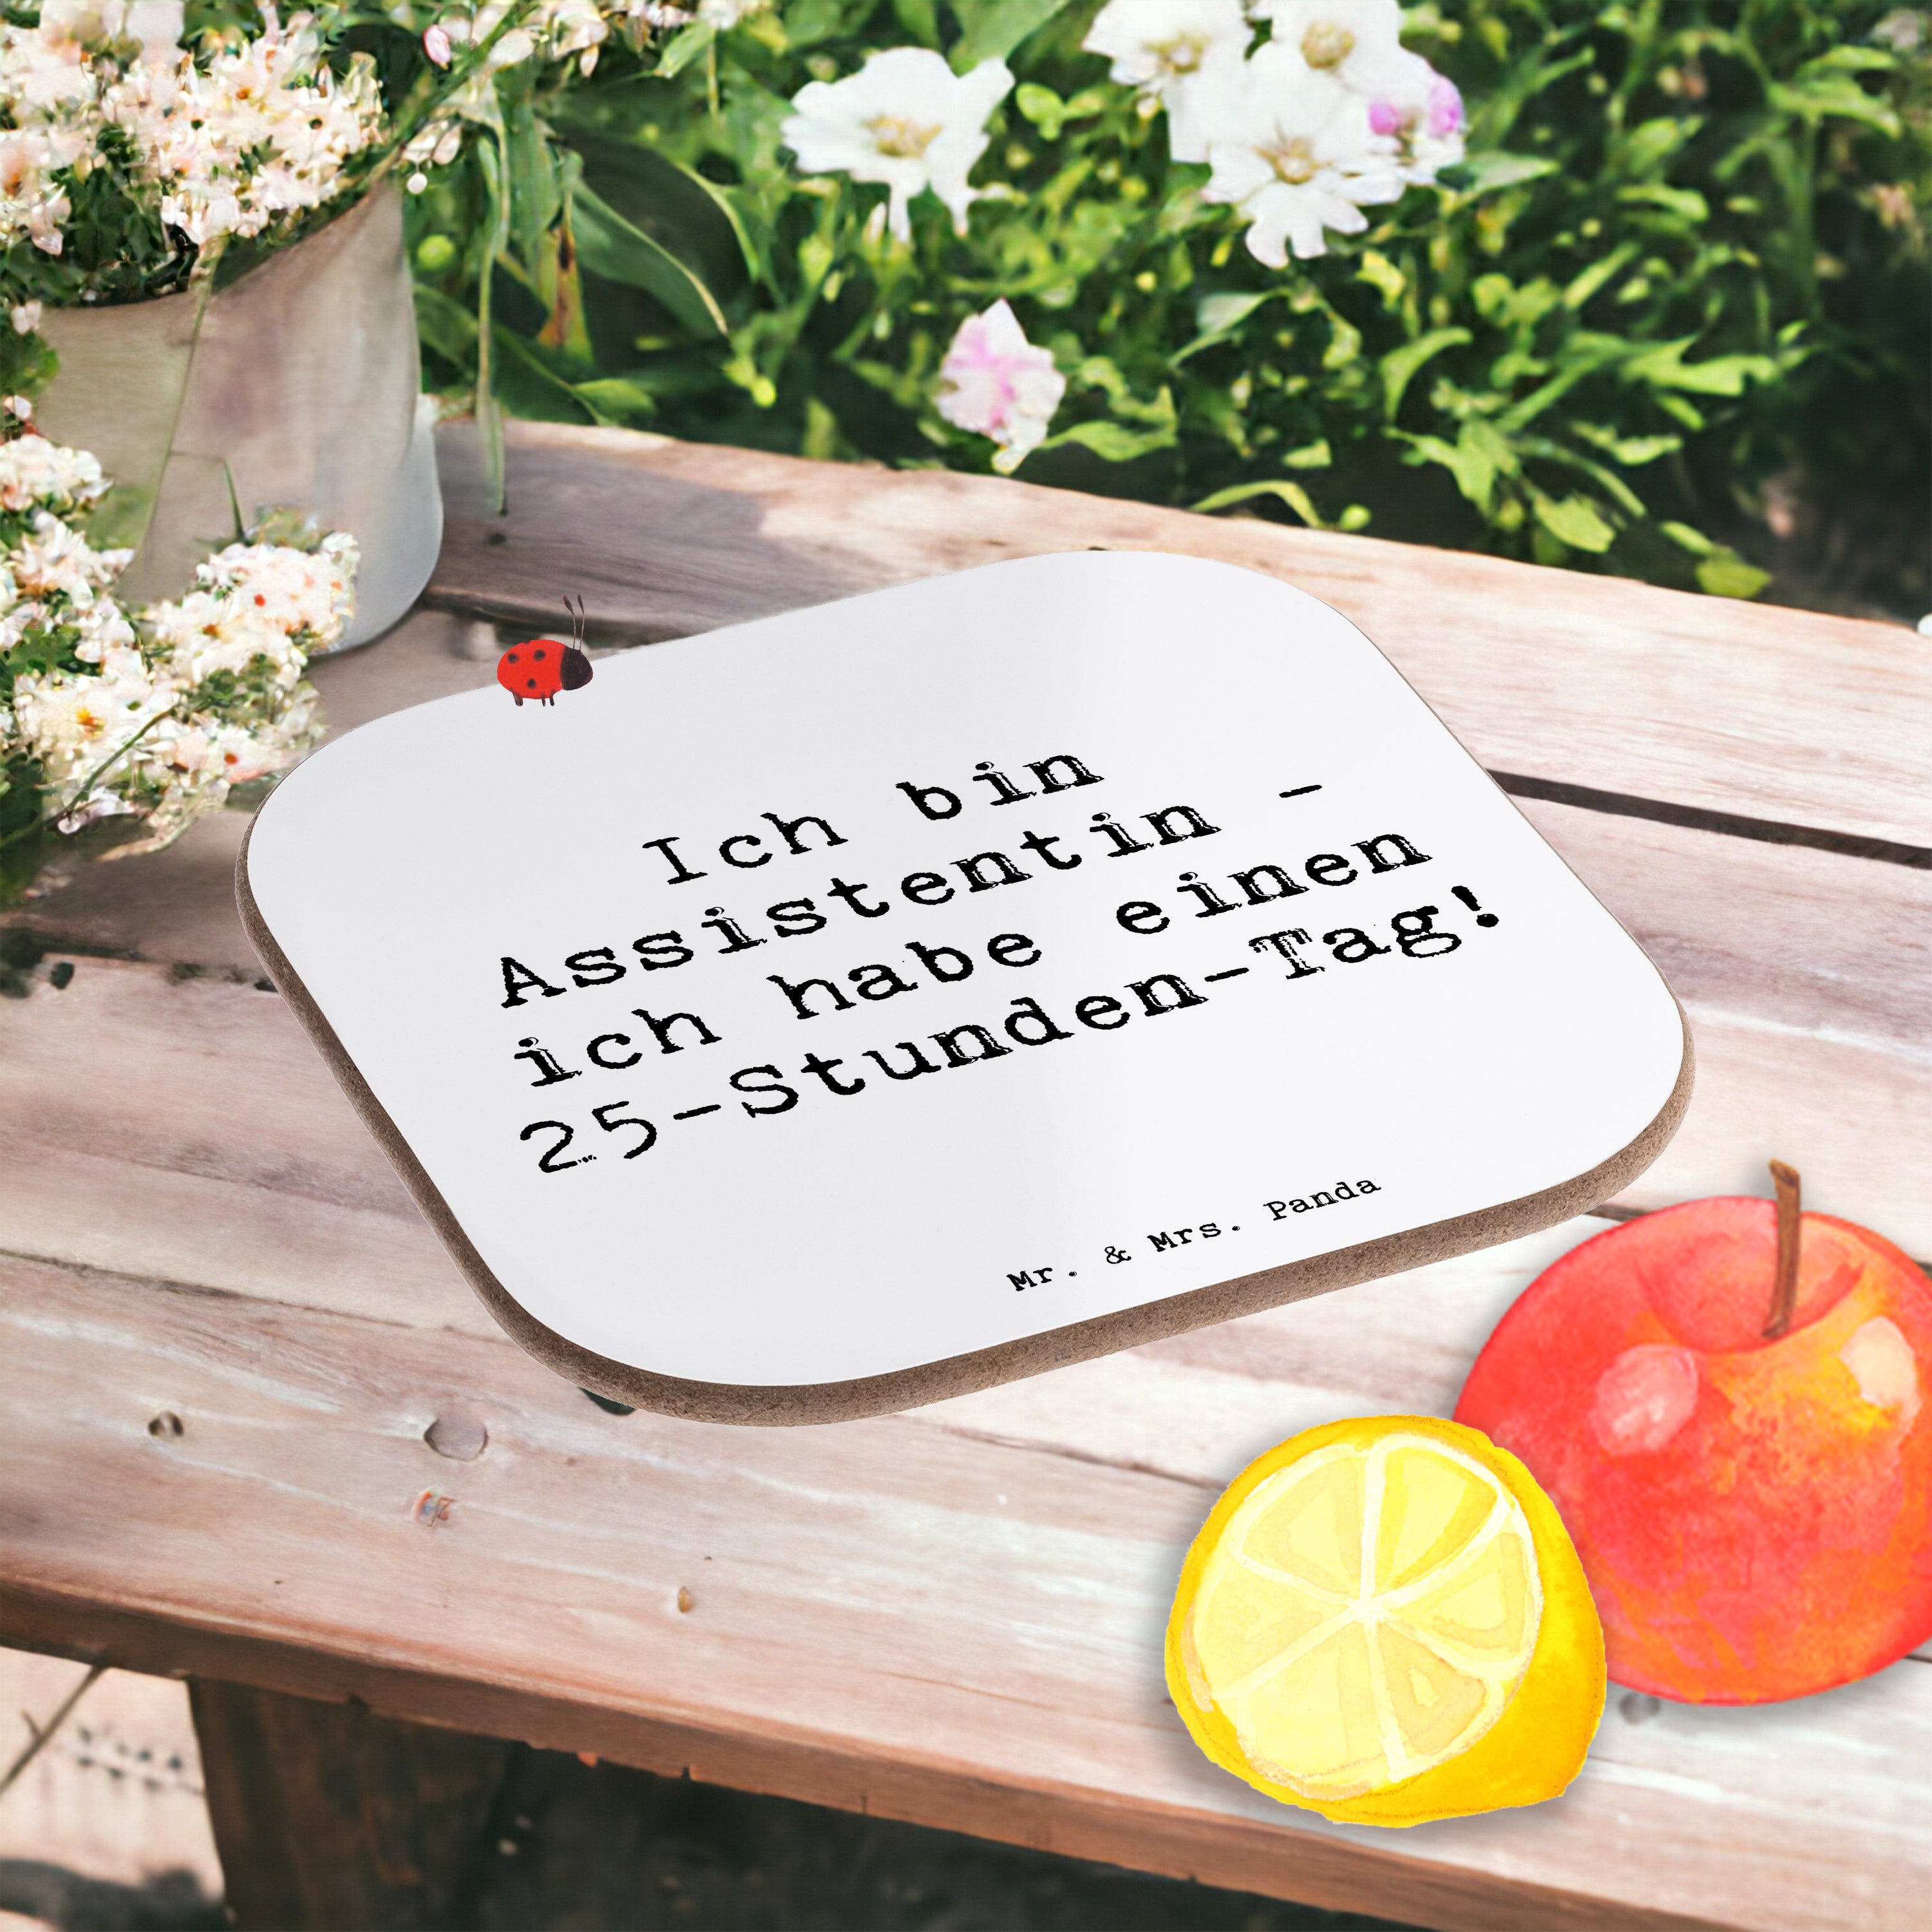 Ich bin
Assistentin -
ich habe einen
25-Stunden-Tag!
Mr. & Mrs. Panda